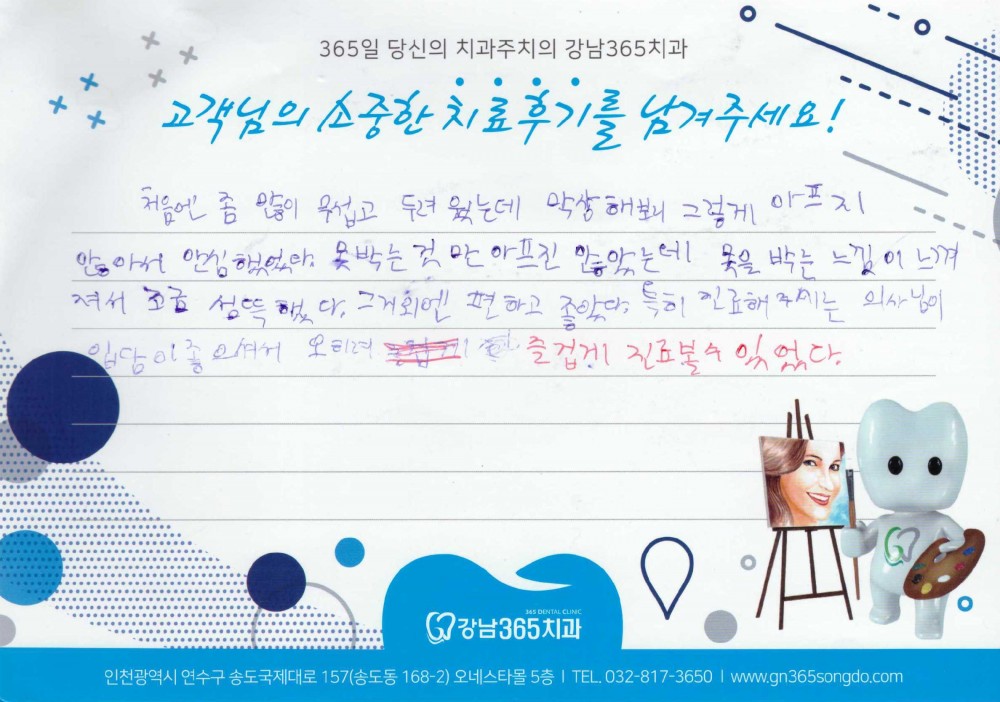 365일 당신의 치과주치의 강남365치과
고객님의 소중한 치료후기를 남겨주세요!
처음엔 좀 많이 무섭고 두려웠는데 막상해보니 그렇게 아프지
않아서 안심했었다. 못박는것만 아프진 않았는데 못을 박는 느낌이 느껴
져서 조금 섬뜩했다. 그거외엔 편하고 좋았다. 특히 진료해주시는 의사님이
입담이좋으셔서 오히려 즐겁게 진료볼수 있었다.
365 DENTAL CLINIC
강남365치과
인천광역시 연수구 송도국제대로 157(송도동 168-2) 오네스타몰 5층 | TEL. 032-817-3650 | www.gn365songdo.com